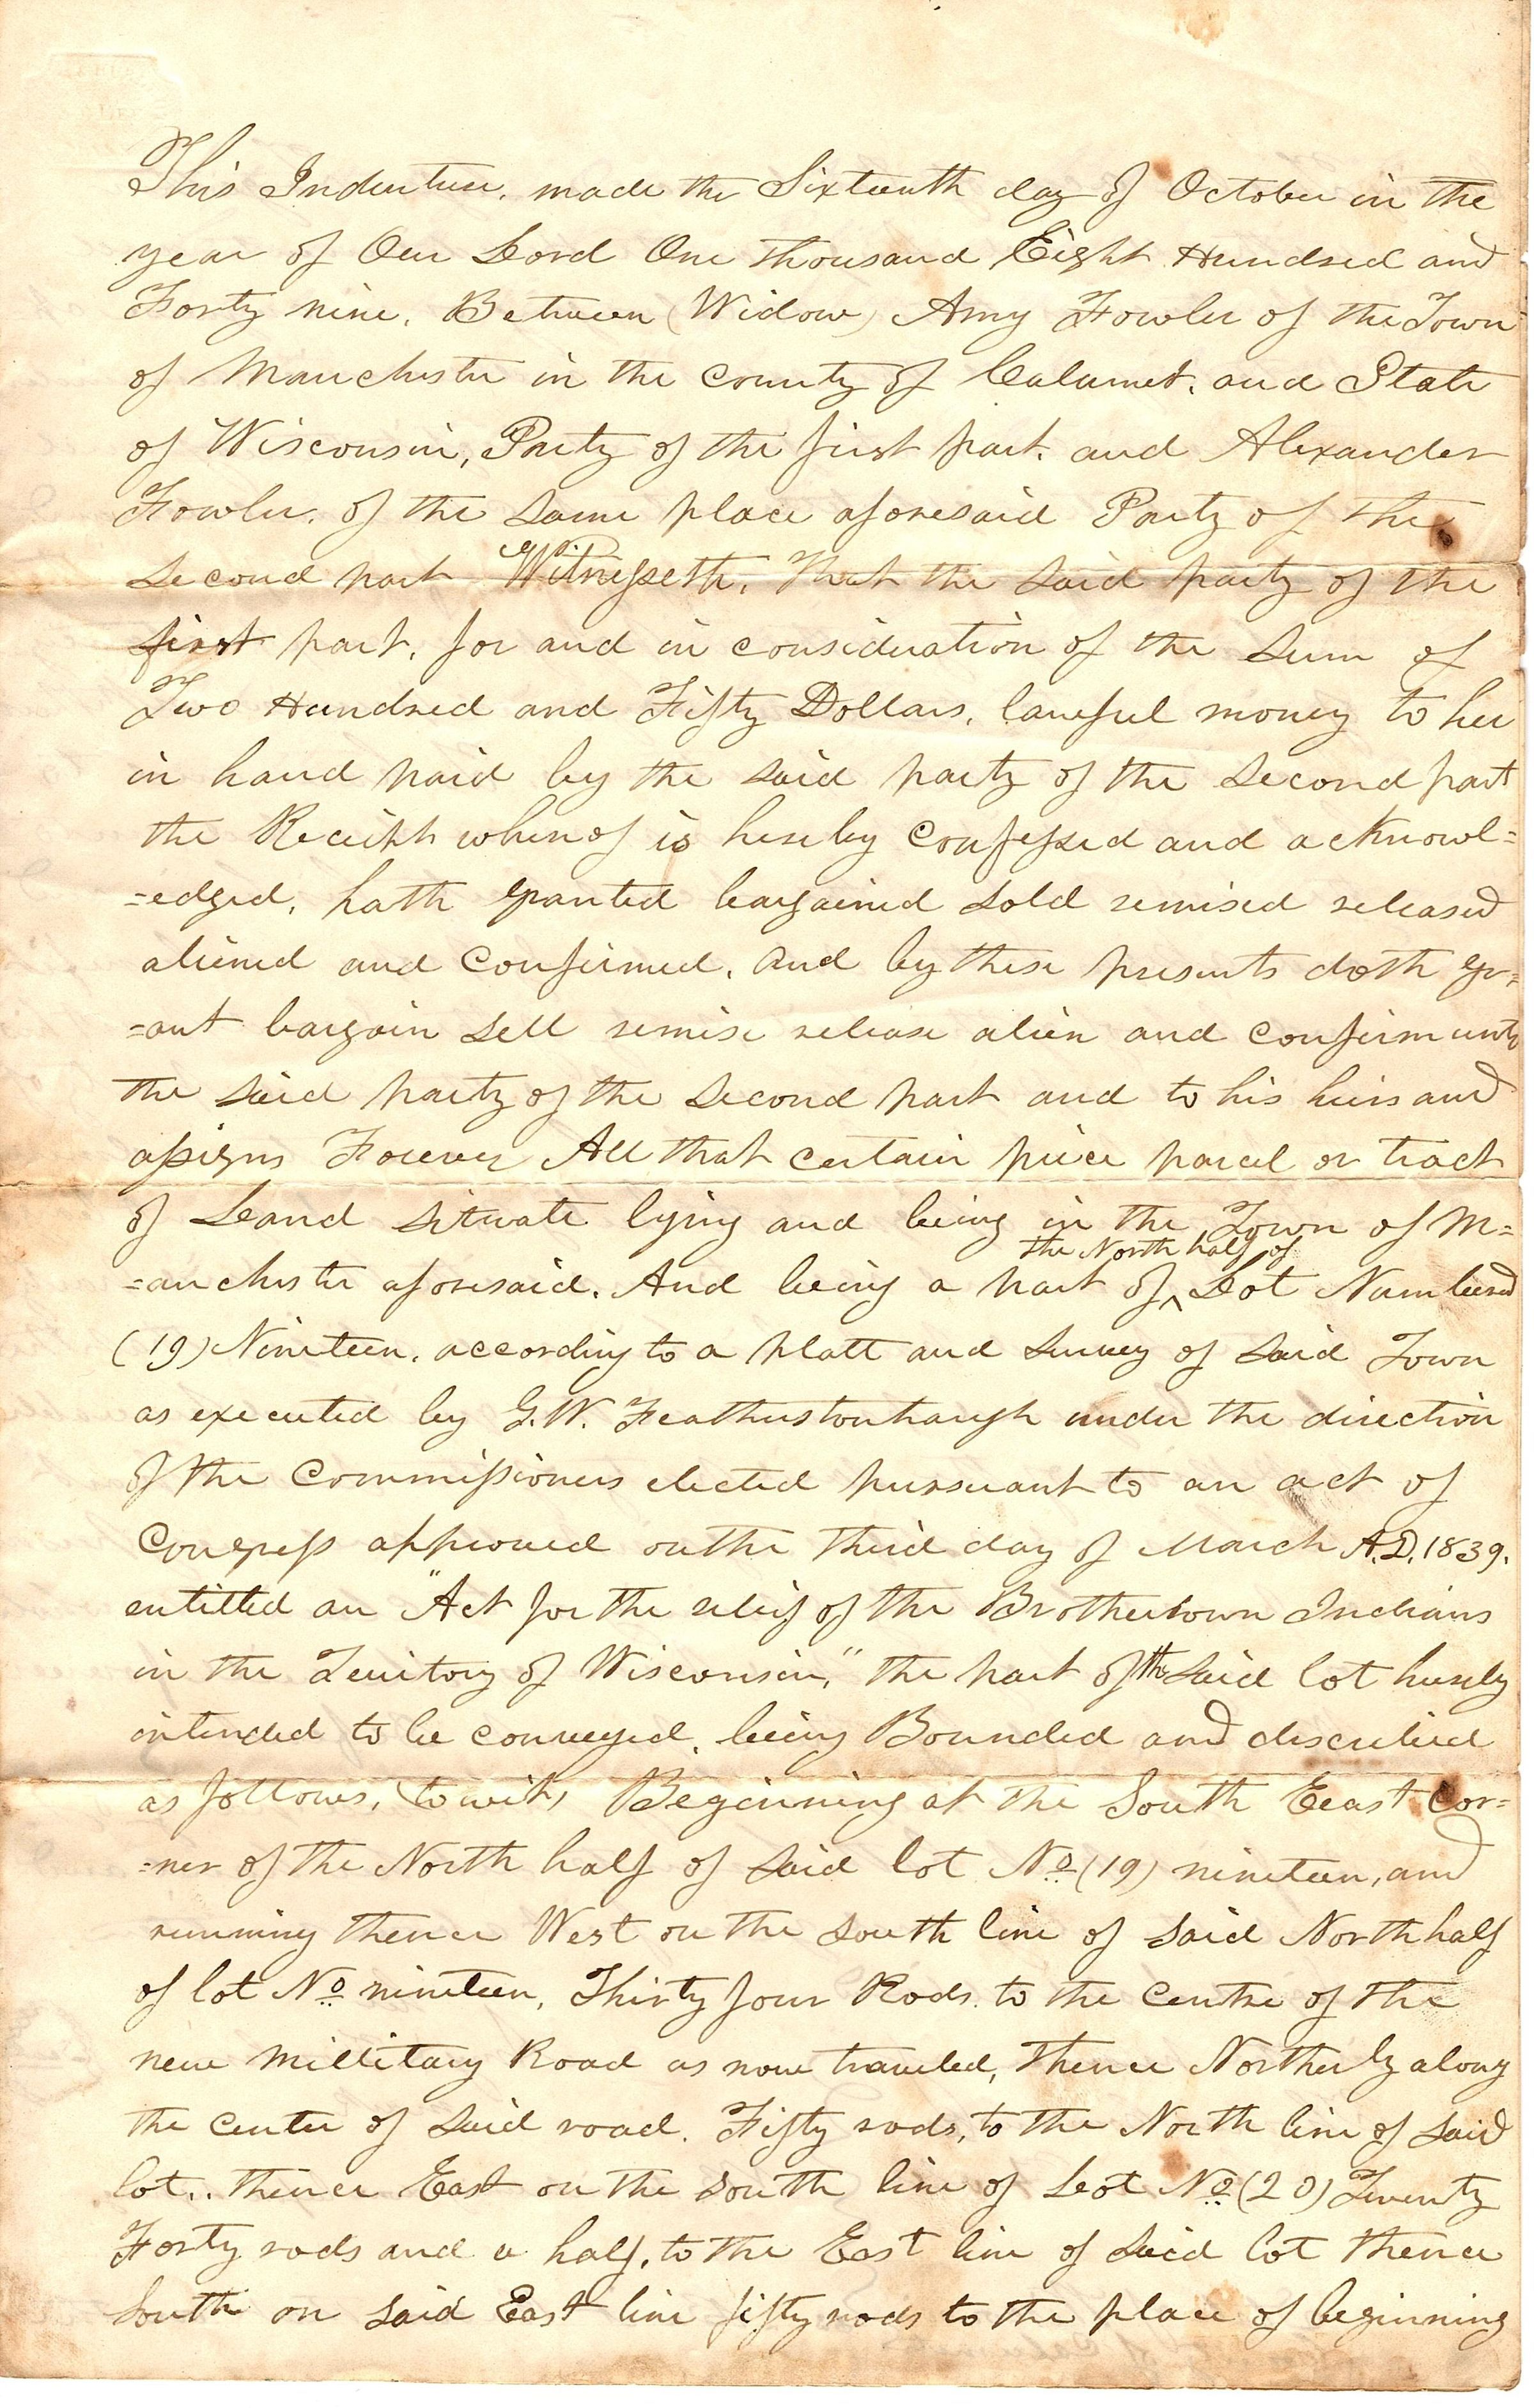 This Indenture, made the Sixteenth day of October in the
year of Our Lord One thousand Eight Hundred and
Forty nine, Between (Widow) Amy Fowler of the Town
of Manchester in the county of Calumet, and State
of Wisconsin, Party of the first part, and Alexander
Fowler, of the same place aforesaid Party of the
second part Witnesseth, That the said party of the
first part, for and in consideration of the sum of
Two Hundred and Fifty Dollars, lawful money to her
in hand paid by the said party of the second part
the Receipt whereof is hereby confessed and acknowl=
=edged, hath granted bargained sold remised released
aliened and confirmed, and by these presents doth gr=
=ant bargain sell remise release alien and confirm unto
the said party of the second part and to his heirs and
assigns Forever All that certain piece parcel or tract
of Land situate lying and being in the Town of M=
the North half of
=anchester aforesaid. And being a part of ^ Lot Numbered
(19) Nineteen, according to a platt and survey of said Town
as executed by G.W. Featherstonhaugh under the direction
of the Commissioners elected pursuant to an act of
Congress approved on the third day of March A.D. 1839.
entitled an "Act for the relief of the Brothertown Indians
in the Territory of Wisconsin," the part of the said lot hereby
intended to be conveyed, being Bounded and described
as follows, (to wit) Beginning at the South East Cor=
=ner of the North half of said lot No (19) nineteen, and
running thence West on the south line of said North half
of lot No nineteen, Thirty four Rods to the centre of the
new Millitary Road as now traveled, thence Northerly along
the center of said road. Fifty rods, to the North line of said
lot.. thence East on the south line of Lot No (20) Twenty
Forty rods and a half, to the East line of said lot thence
South on said East line fifty rods to the place of beginning